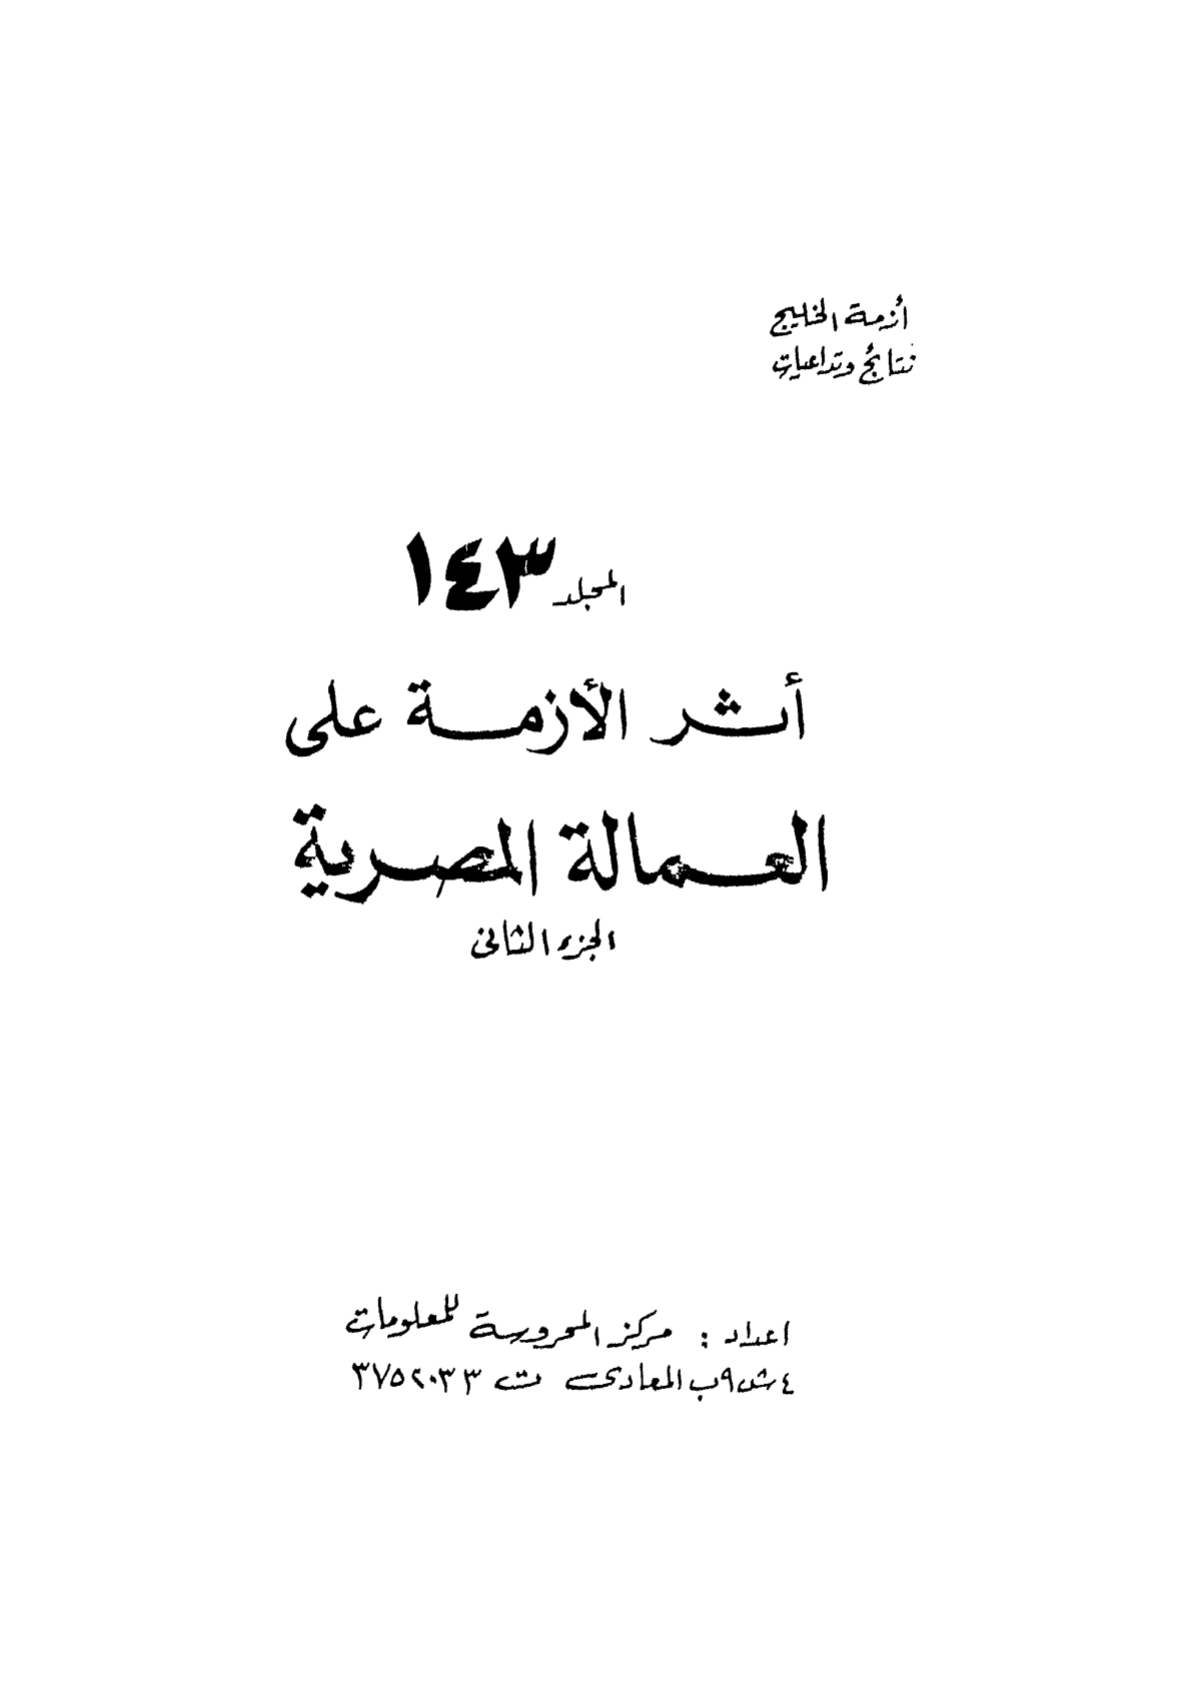 أزمة الخليج
نتائج وتداعيات
المجلد ١٤٣
أثر الأزمة على
العمالة المصرية
الجزء الثانى
اعداد : مركز المحروسة للمعلومات
٤ ش ٩ب المعادى ت ٣٧٥٢٠٣٣